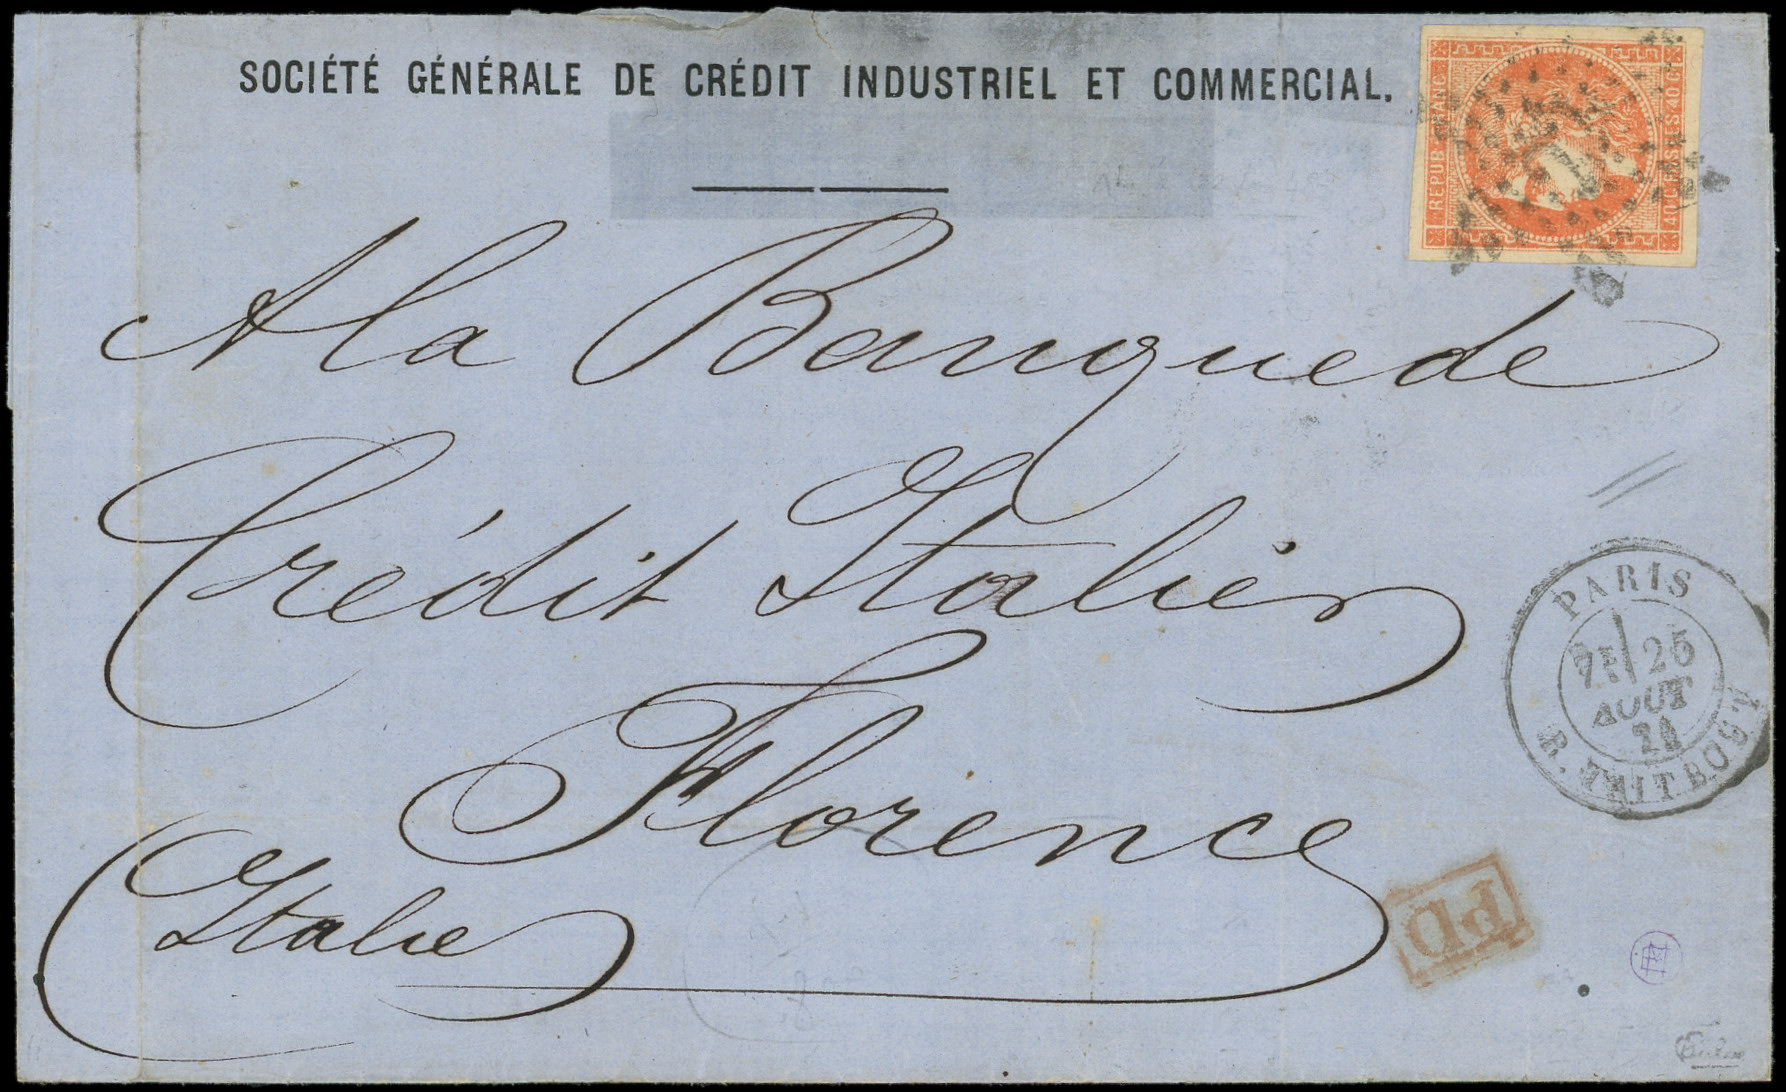 SOCIÉTÉ GÉNÉRALE DE CRÉDIT INDUSTRIEL ET COMMERCIAL.
REPUB FRANC
40 C POSTES 40 C
A la Banque de
Crédit Italien
Florence
Italie
PARIS
25
AOUT
R. TAITBOUT
PD